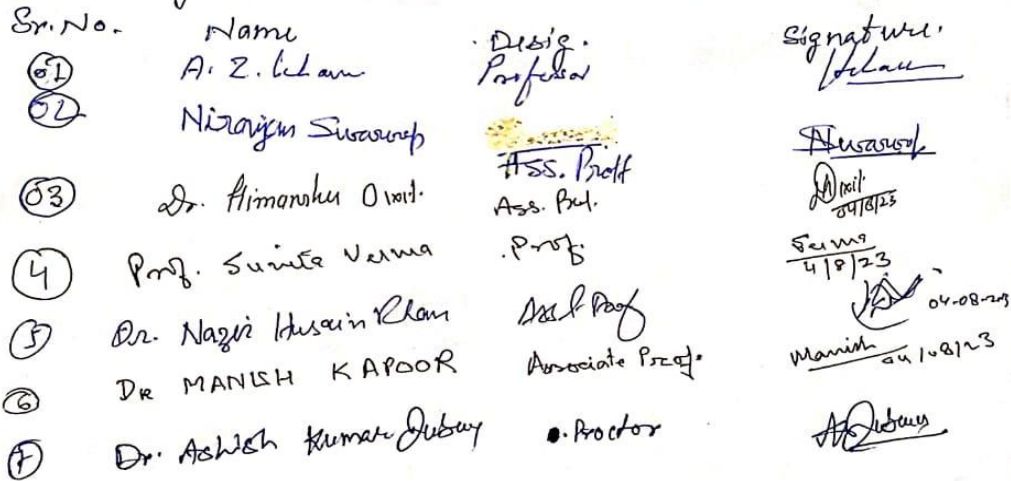 Sr. No. Name Desig. Signature.
01 A. Z. Khan Professor Khan
02 Niranjan Swaroop Ass. Proff Nswaroop
03 Dr. Himanshu Dixit. Ass. Prof. Dixit 04/8/23
4 Prof. Sunita Verma Prof. 4/8/23
5 Dr. Nazir Husain Khan Asst Prof 04-08-23
6 DR MANISH KAPOOR Associate Prof. Manish 04/08/23
7 Dr. Ashish Kumar Dubey Proctor ADubey